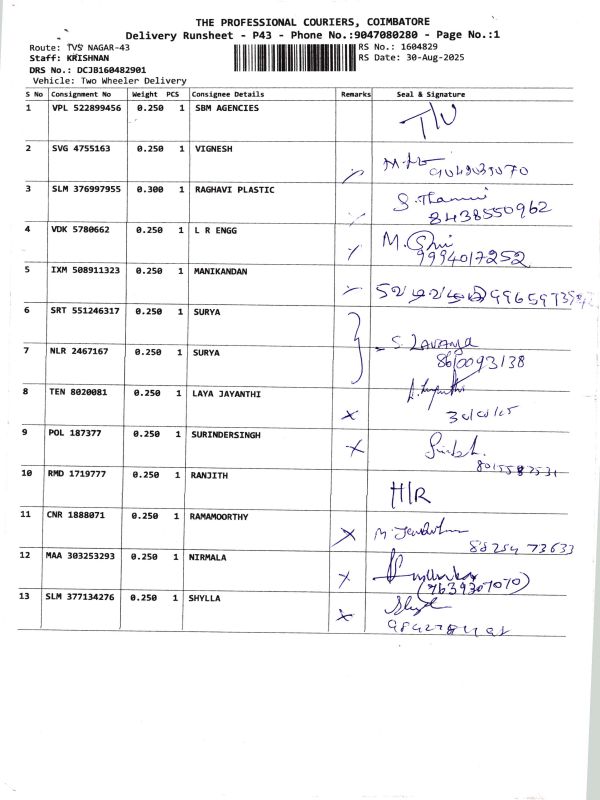 THE PROFESSIONAL COURIERS, COIMBATORE
Delivery Runsheet - P43 - Phone No.:9047080280 - Page No.:1
Route: TVS NAGAR-43
RS No.: 1604829
Staff: KRISHNAN
RS Date: 30-Aug-2025
DRS No.: DCJB160482901
Vehicle: Two Wheeler Delivery
S No Consignment No Weight PCS Consignee Details Remarks Seal & Signature
1 VPL 522899456 0.250 1 SBM AGENCIES
2 SVG 4755163 0.250 1 VIGNESH
3 SLM 376997955 0.300 1 RAGHAVI PLASTIC
8438550962
4 VDK 5780662 0.250 1 L R ENGG
9994017252
5 IXM 508911323 0.250 1 MANIKANDAN
6 SRT 551246317 0.250 1 SURYA
S. Lavanya
7 NLR 2467167 0.250 1 SURYA
8610093138
8 TEN 8020081 0.250 1 LAYA JAYANTHI
9 POL 187377 0.250 1 SURINDERSINGH
10 RMD 1719777 0.250 1 RANJITH
H/R
11 CNR 1888071 0.250 1 RAMAMOORTHY
88254 73633
12 MAA 303253293 0.250 1 NIRMALA
(7639307070)
13 SLM 377134276 0.250 1 SHYLLA